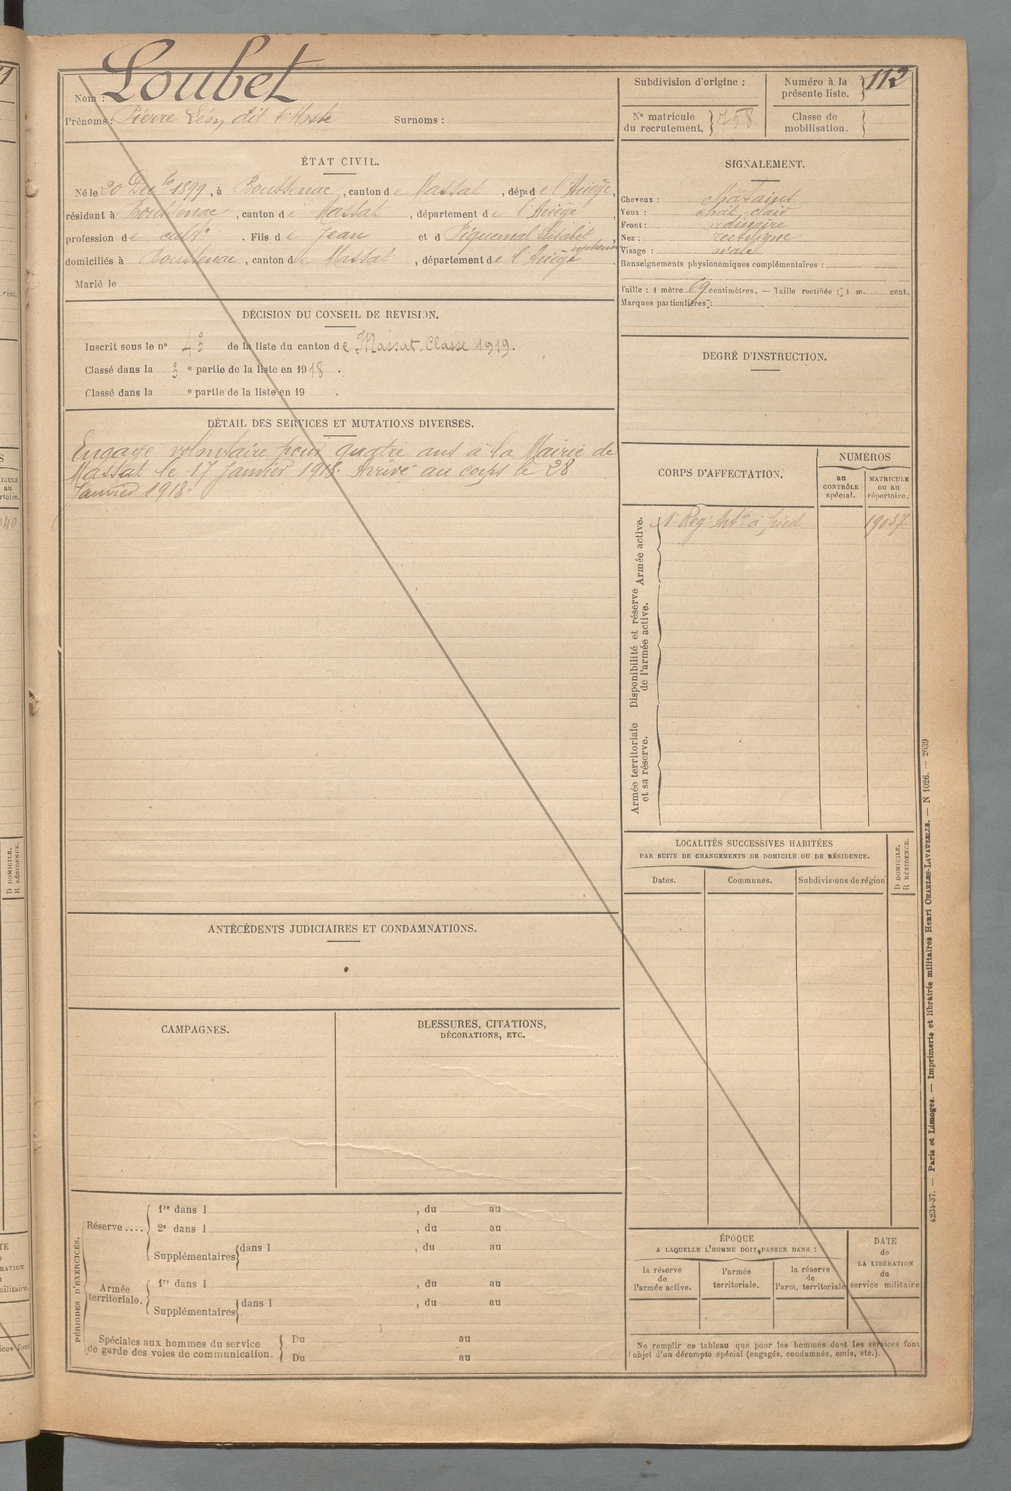 Nom : Loubet
Prénoms : Pierre dit
Surnoms :
Subdivision d'origine :
Numéro à la présente liste. 112
Nº matricule du recrutement.
Classe de mobilisation.
ÉTAT CIVIL.
Né le 20 Dec bre 1899, à Boussenac, canton de Massat, dép t de l'Ariège,
résidant à Boussenac, canton de Massat, département de l'Ariège
profession de cult r. Fils de Jean et d Piquemal Elisabet
domiciliés à Boussenac, canton de Massat, département de l'Ariège
Marié le
SIGNALEMENT.
Cheveux : châtains
Yeux : chat. clair
Front : ordinaire
Nez : rectiligne
Visage : ovale
Renseignements physionomiques complémentaires :
Taille : 1 mètre 69 centimètres. — Taille rectifiée : 1 m. cent.
Marques particulières :
DÉCISION DU CONSEIL DE REVISION.
Inscrit sous le nº de la liste du canton de Massat. Classe 1919.
Classé dans la 3 e partie de la liste en 1918.
Classé dans la e partie de la liste en 19 .
DEGRÉ D'INSTRUCTION.
DÉTAIL DES SERVICES ET MUTATIONS DIVERSES.
Engagé volontaire pour quatre ans à la Mairie de
Massat le 17 Janvier 1918. Arrivé au corps le 28
Janvier 1918.
CORPS D'AFFECTATION.
NUMÉROS
au CONTRÔLE spécial.
MATRICULE ou au répertoire.
Armée active.
Reg t Art ie à pied
Disponibilité et réserve de l'armée active.
Armée territoriale et sa réserve.
LOCALITÉS SUCCESSIVES HABITÉES
PAR SUITE DE CHANGEMENTS DE DOMICILE OU DE RÉSIDENCE.
Dates.
Communes.
Subdivisions de région
D DOMICILE.
R RÉSIDENCE.
ANTÉCÉDENTS JUDICIAIRES ET CONDAMNATIONS.
CAMPAGNES.
BLESSURES, CITATIONS,
DÉCORATIONS, ETC.
PÉRIODES D'EXERCICES.
Réserve....
1re dans l , du au
2e dans l , du au
Supplémentaires dans l , du au
Armée territoriale.
1re dans l , du au
Supplémentaires dans l , du au
Spéciales aux hommes du service
de garde des voies de communication.
Du au
Du au
ÉPOQUE
A LAQUELLE L'HOMME DOIT PASSER DANS :
la réserve de l'armée active.
l'armée territoriale.
la réserve de l'arm. territoriale
DATE de LA LIBÉRATION du service militaire
Ne remplir ce tableau que pour les hommes dont les services font
l'objet d'un décompte spécial (engagés, condamnés, omis, etc.).
4234-37. — Paris et Limoges. — Imprimerie et librairie militaires Henri CHARLES-LAVAUZELLE. — N 1026. — 2639